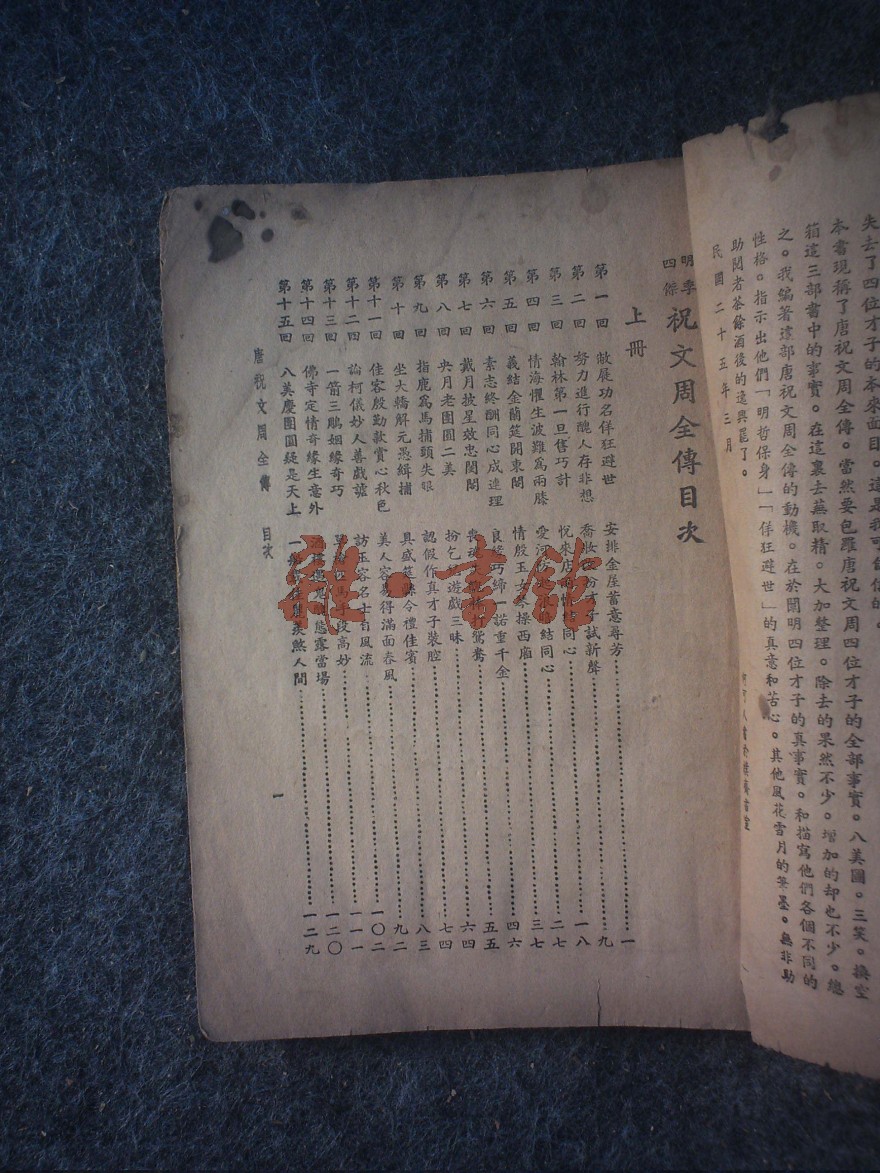 失去了四位才子的本來面目。這是我可自信的。
本書現稱了唐祝文周全傳。當然要包羅唐祝文周四位才子的全部事實。八美圖。三笑。換空
箱這三部書中的事實。在這裏去蕪取精。大加整理。除去的果然不少。增加的却也不少。總
之。我編著這部唐祝文周全傳的動機。在於闡明四位才子的真事實。和描寫他們各個不同的
性格。指示出他們「明哲保身」「佯狂避世」的真意和苦心。其他風花雪月的筆墨。無非助
助閱者茶餘酒後的逸興罷了。
民國二十五年三月
明季四傑 祝文周全傳目次
上冊
第一回 敝屣功名佯狂避世 安排金屋蓄意尋芳 一
第二回 努力進行醜人存非想 喬妝 才子試新聲 九
第三回 翰林第一旦售巧計 悅來店 結同心 一八
第四回 情海懼生波難爲兩膝 愛河 結同心 二七
第五回 義結金蘭筵開東閣 情殷玉女 操西廂 三七
第六回 素志終酬同心成連理 良緣巧締一諾重千金 四六
第七回 戴月披星效忠閨閣 喪 打鴛鴦 五五
第八回 央月老團圓二美 扮乞 遊戲三昧 六四
第九回 指鹿爲馬捕頭失娘 認假作真才子裝腔 七四
第十回 坐大轎解元愚緝捕 具盛筵縣令禮佳賓 八三
第十一回 佳客殷勤款賞心秋色 美人容易得滿面春風 九二
第十二回 論柯儀妙人善戲謔 訪玉容名士自風流 一〇二
第十三回 一箭三鵰姻緣奇巧 馬手段高妙 一一一
第十四回 佛寺定情奇緣生意外 態露當場 一二〇
第十五回 八美慶團圓疑是天上 一 羨煞人間 一二九
唐祝文周全傳 目次 一